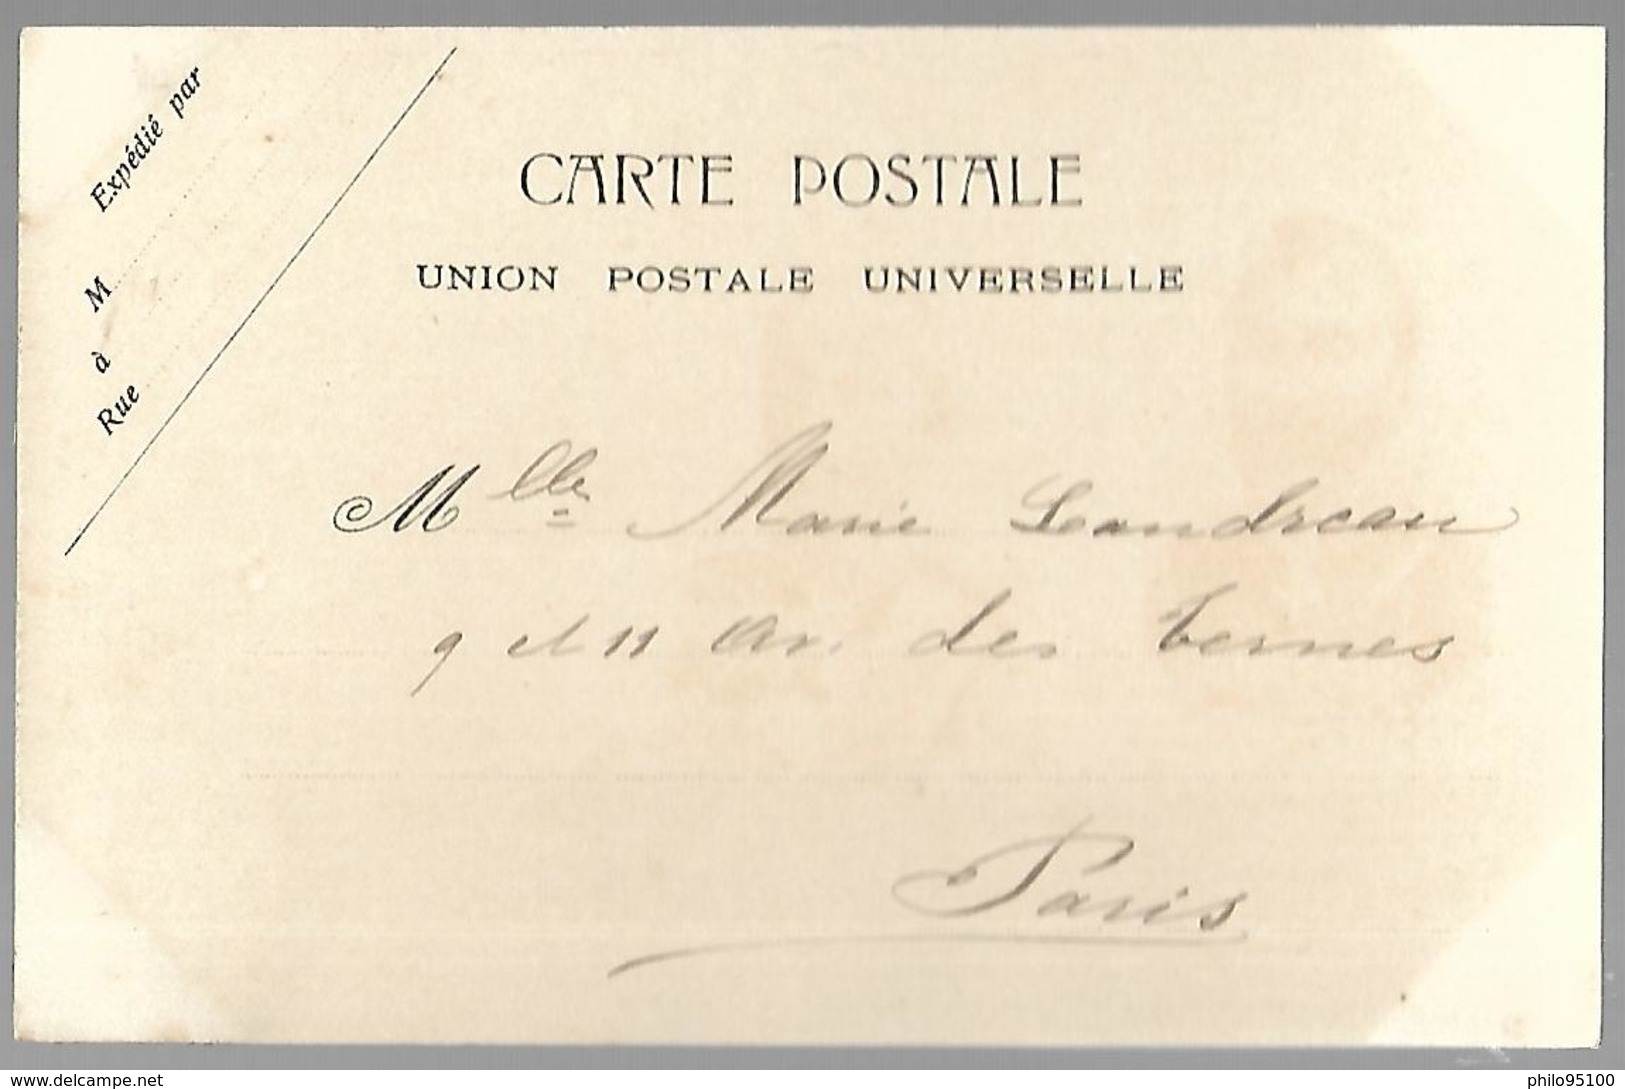 Expédié par
M
à
Rue
CARTE POSTALE
UNION POSTALE UNIVERSELLE
Mlle Marie Landreau
9 et 11 Av. des Ternes
Paris
www.delcampe.net
philo95100